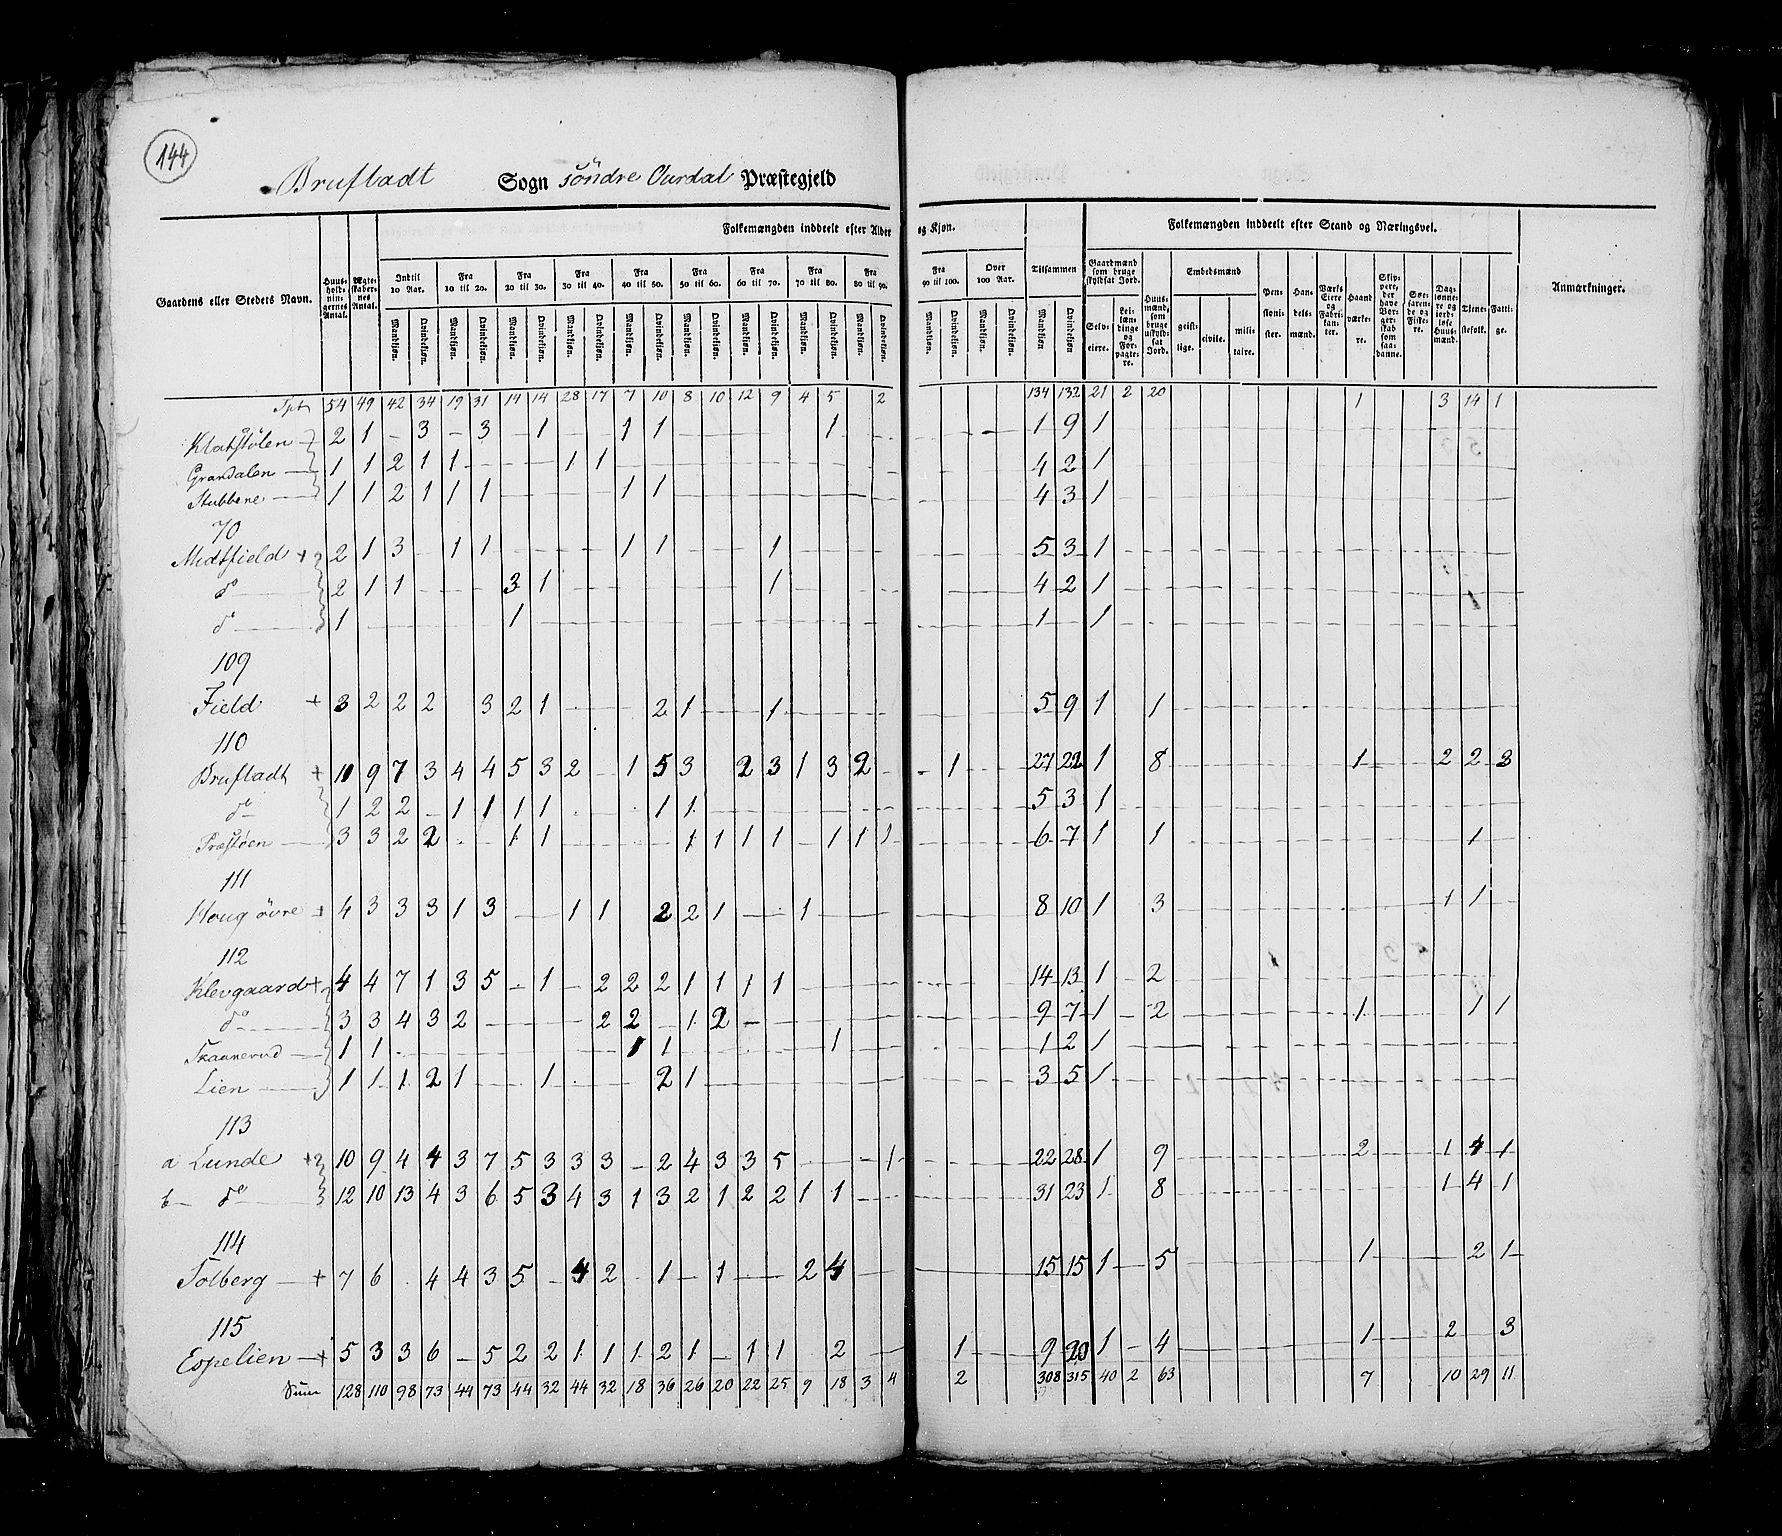 144
Brufladt Sogn Söndre Ourdal Præstegjeld
Folkemængden inddeelt efter Alder og Kjøn.
Folkemængden inddeelt efter Stand og Næringsvei.
Gaardens eller Stedets Navn.
Huus-hold-nin-gernes Antal.
Ægte-skaber-nes Antal.
Indtil 10 Aar.
Fra 10 til 20.
Fra 20 til 30.
Fra 30 til 40.
Fra 40 til 50.
Fra 50 til 60.
Fra 60 til 70.
Fra 70 til 80.
Fra 80 til 90.
Fra 90 til 100.
Over 100 Aar.
Tilsammen
Mandkjøn. Qvindekjøn.
Gaardmænd som bruge skyldsat Jord.
Selv-eiere.
Lei-læn-dinge og For-pagte-re.
Huus-mænd, som bruge uskyld-sat Jord.
Embedsmænd
geist-lige. civile. mili-taire.
Pen-sioni-ster.
Han-dels-mænd.
Værks Eiere og Fabri-kan-ter.
Haand værke-re.
Skip-pere, der have Bor-ger-skab som saa-danne.
Søe-farende og Fiske-re.
Dag-lønne-re og jord-løse Huus-mænd.
Tjene-stefolk.
Fatti-ge.
Anmærkninger.
Tpt 54 49 42 34 19 31 14 14 28 17 7 10 8 10 12 9 4 5 2 134 132 21 2 20 1 3 14 1
Klatstølen 2 1 - 3 - 3 - 1 1 1 1 1 9 1
Grandalen 1 1 2 1 1 1 1 4 2 1
Stubbene 1 1 2 1 1 1 1 1 4 3 1
70
Midtfield + 2 1 3 1 1 1 1 1 5 3 1
do 2 1 1 3 1 1 4 2 1
do 1 1 1 1
109
Field + 3 2 2 2 3 2 1 2 1 1 5 9 1 1
110
Brufladt + 10 9 7 3 4 4 5 3 2 1 5 3 2 3 1 3 2 1 27 22 1 8 1 2 2 3
do 1 2 2 1 1 1 1 1 1 5 3 1
Præstøen 3 3 2 2 1 1 1 1 1 1 1 1 1 6 7 1 1 1
111
Houg övre + 4 3 3 3 1 3 1 1 2 2 1 1 8 10 1 3 1 1
112
Klevgaard + 4 4 7 1 3 5 - 1 - 2 2 2 1 1 1 1 14 13 1 2
do 3 3 4 3 2 2 2 - 1 2 9 7 1 2 1 1 1
Skaanerud 1 1 1 1 1 1 2 1
Lien 1 1 1 2 1 1 2 1 3 5 1
113
a Lunde + 10 9 4 4 3 7 5 3 3 3 - 2 4 3 3 5 1 22 28 1 9 2 1 4 1
b do 12 10 13 4 3 6 5 3 4 3 1 3 2 1 2 2 1 1 31 23 1 8 1 4 1
114
Tolberg + 7 6 4 4 3 5 - 4 2 1 - 1 2 4 15 15 1 5 1 2 1
115
Espelien + 5 3 3 6 - 5 2 2 1 1 1 2 1 - 1 1 2 1 9 20 1 4 1 2 3
Sum 128 110 98 73 44 73 44 32 44 32 18 36 26 20 22 25 9 18 3 4 2 308 315 40 2 63 7 10 29 11